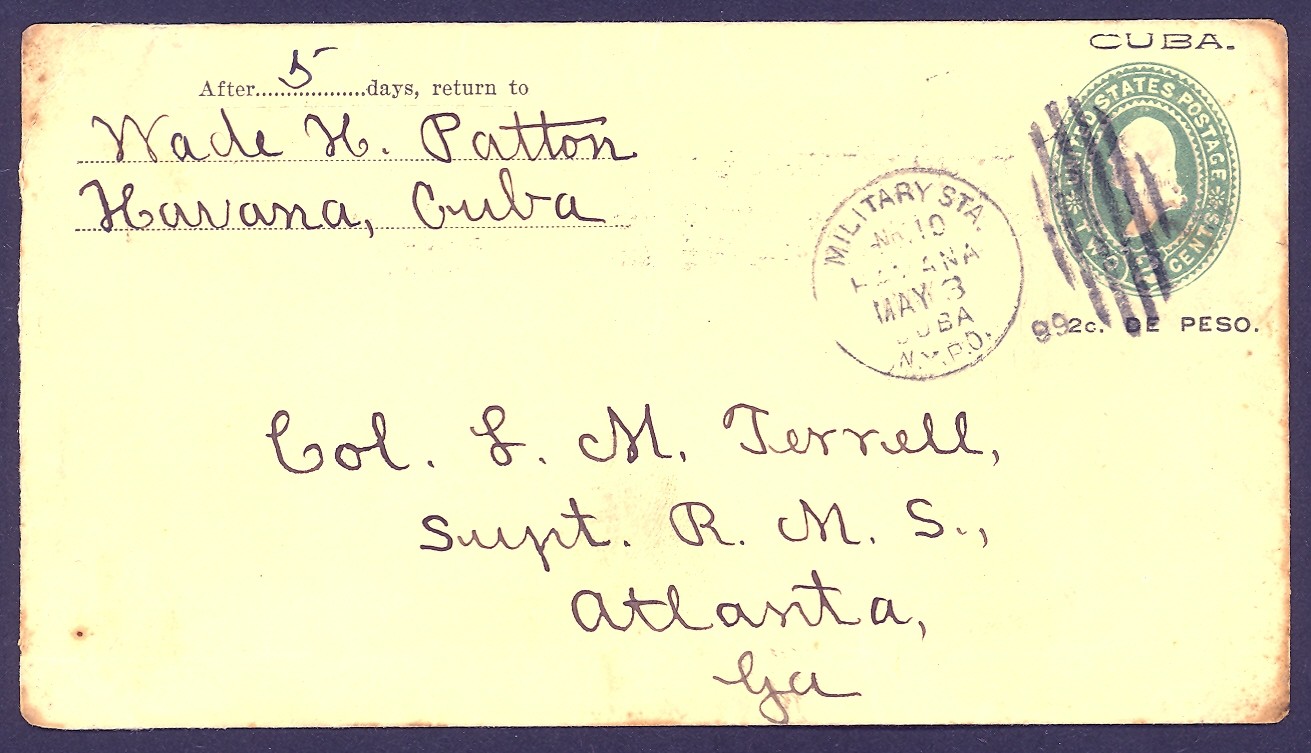 CUBA.
After 5 days, return to
Wade H. Patton
Havana, Cuba
UNITED STATES POSTAGE
TWO CENTS
2
MILITARY STA.
No. 10
HAVANA
MAY 3
CUBA
N.Y.P.O.
99
2c. DE PESO.
Col. L. M. Terrell,
Supt. R. M. S.,
Atlanta,
Ga